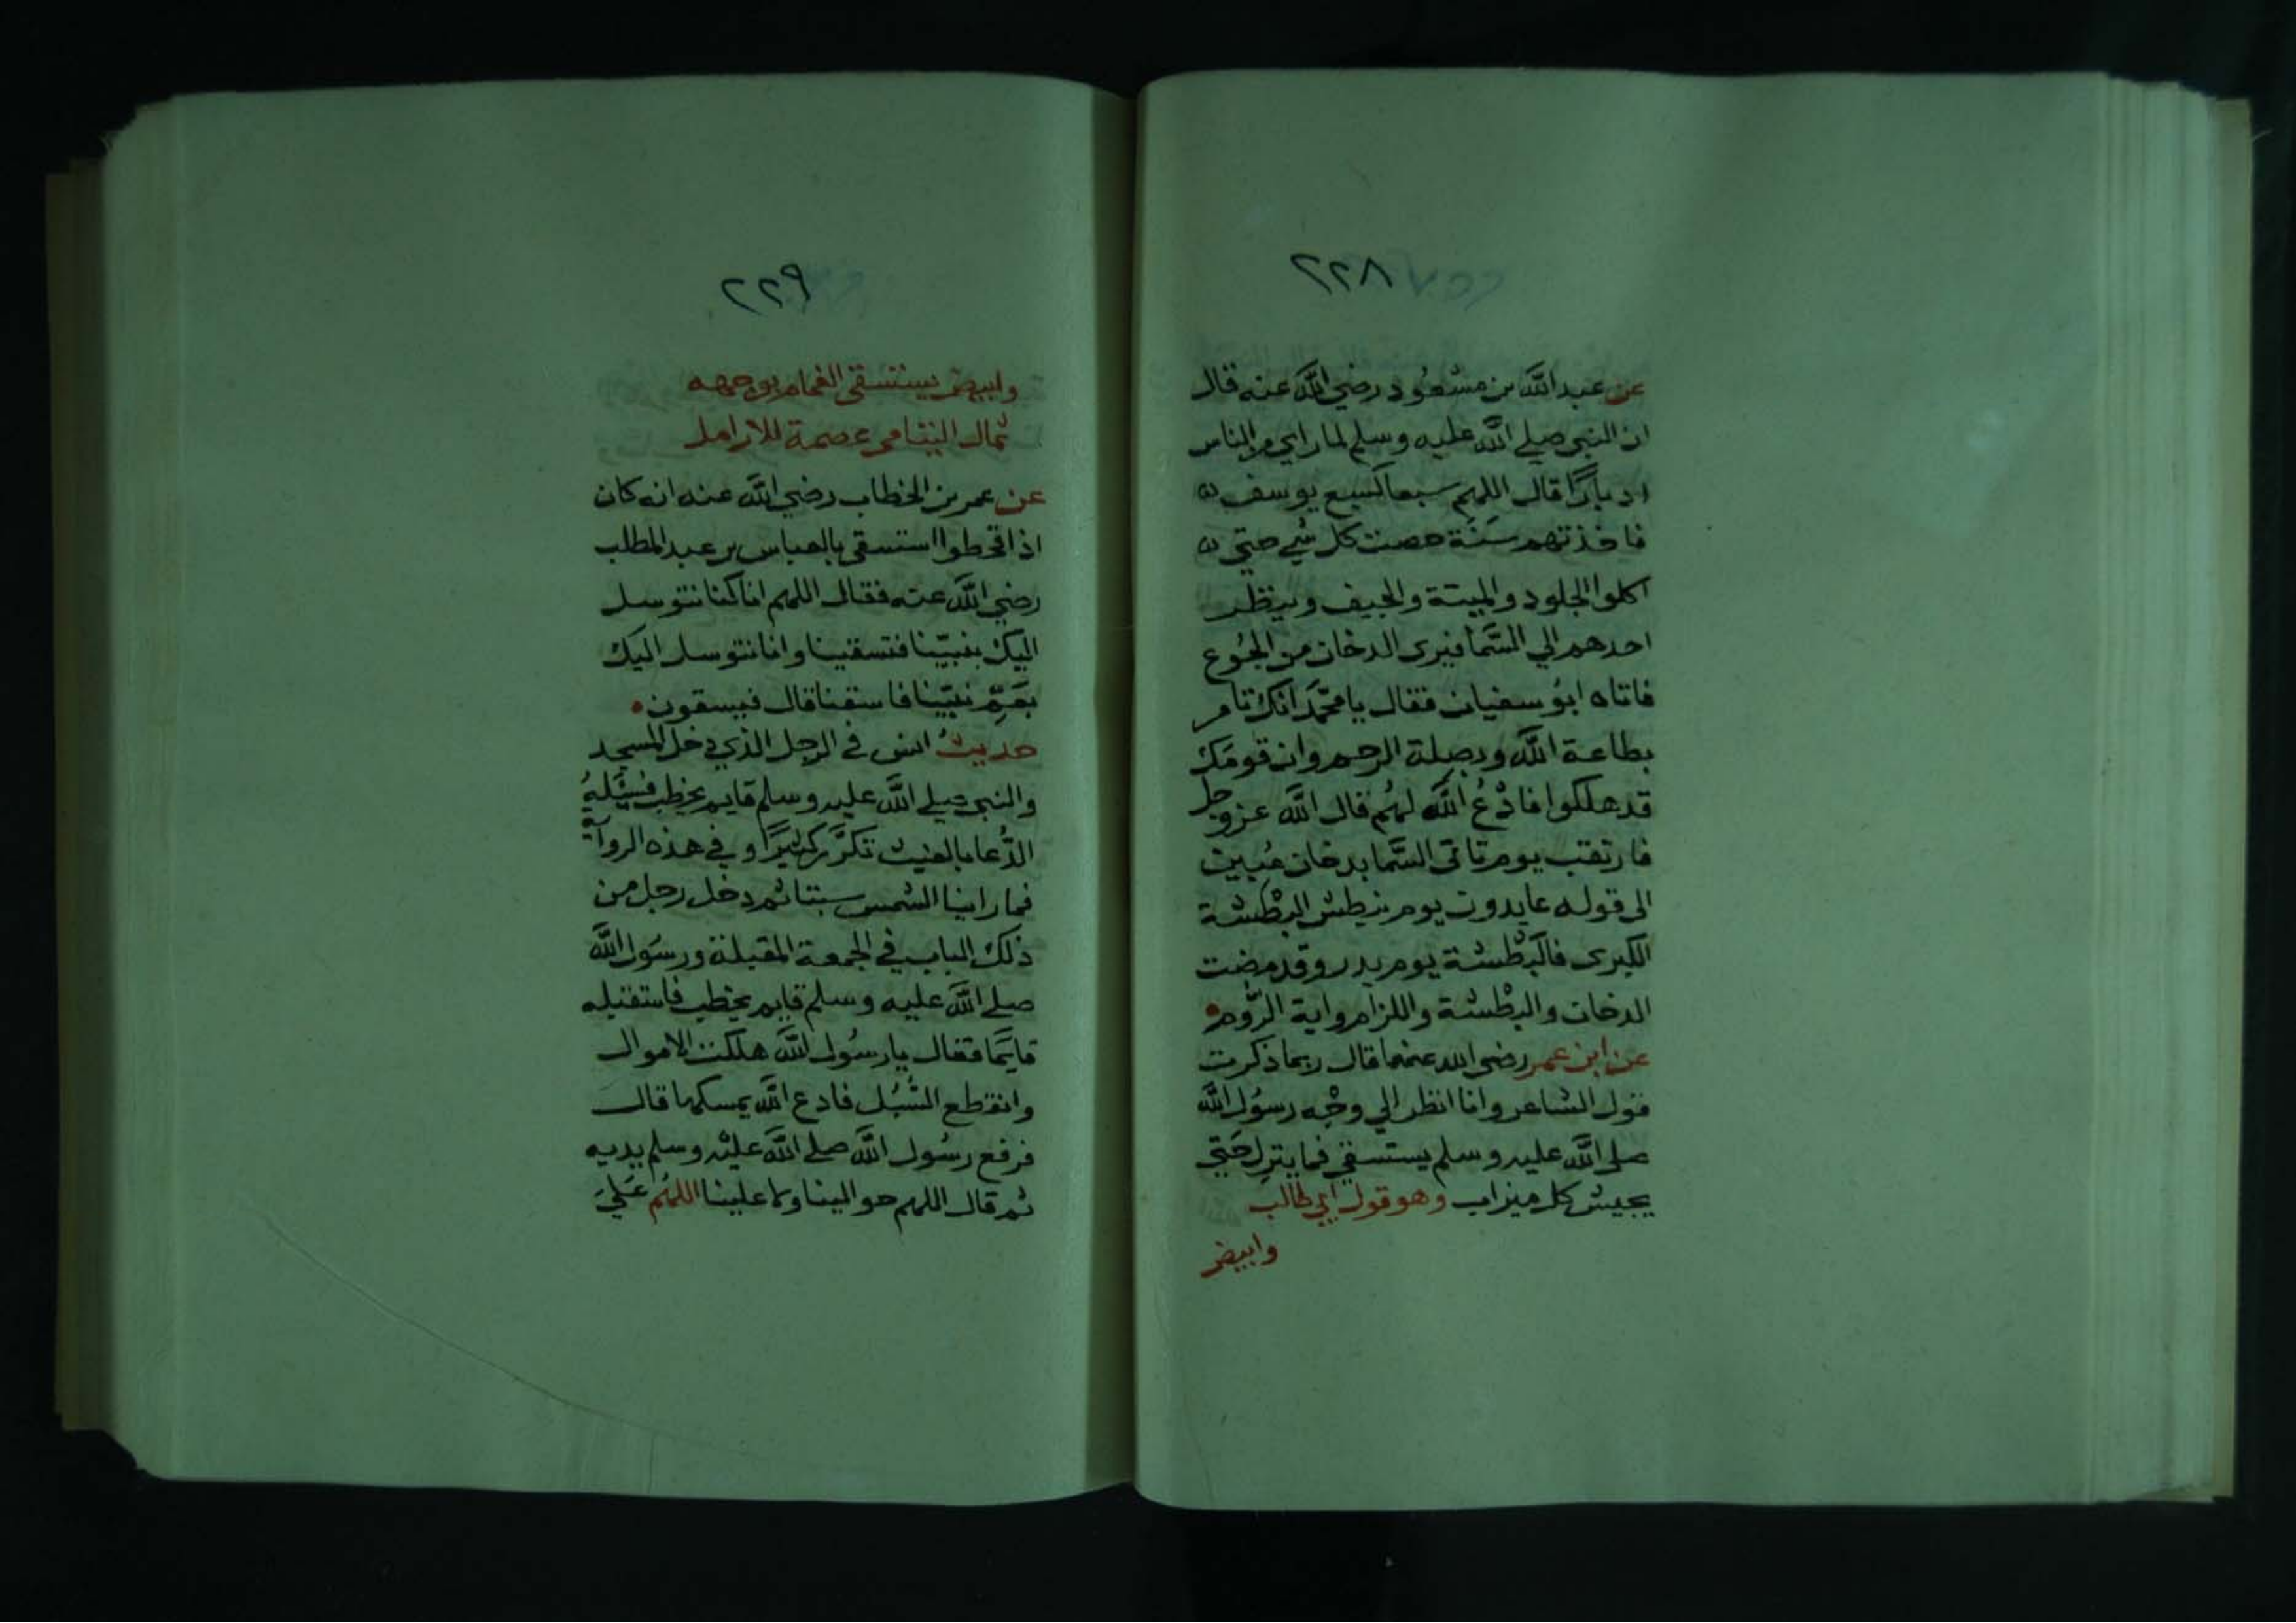 ٢٢٨
عن عبد الله بن مسعود رضي الله عنه قال
ان النبي صلي الله عليه وسلم لما راي من الناس
ادبارًا قال اللهم سبعا كسبع يوسف
فاخذتهم سَنَة حصت كل شي حتي
اكلوا الجلود والميتة والجيف وينظر
احدهم الي السَّما فيرى الدخان من الجُوع
فاتاه ابوُ سفيان فقال يا محمَّد انك تامر
بطاعة الله وبصلة الرحم وان قومَك
قد هلكوا فادْعُ الله لهُم قال الله عز وجل
فارتقب يوم تاتى السَّما بدخان مُبين
الى قوله عايدون يوم نبطش البطْشة
الكبرى فالبَطْشة يوم بدر وقد مضت
الدخان والبطْشة واللزام واية الرُّوم
عن ابن عمر رضى الله عنهما قال ربما ذكرت
قول الشاعر وانا انظر الي وجْه رسوُل الله
صلى الله عليه وسلم يستسقي فما ينزل حَتي
يجيش كل ميزاب وهو قول ابي طالب
وابيض
٢٢٩
وابيض يستسقى الغمام بوجهه
ثمال اليتامى عصمة للارامل
عن عمر بن الخطاب رضي الله عنه انه كان
اذا قحطوا استسقى بالعباس بن عبد المطلب
رضي الله عنه فقال اللهم انا كنا نتوسل
اليك بنبيّنا فتسقينا وانا نتوسل اليك
بعَمِّ نبيّنا فاسقنا قال فيسقون
حديثُ انس في الرجل الذي دخل المسجد
والنبي صلي الله عليه وسلم قايم يخطب فسَئَلهُ
الدُّعا بالغيث تكرَّر كثيرًا وفي هذه الرواية
فما راينا الشمس سبتا ثم دخل رجل من
ذلك الباب في الجمعة المقبلة ورسُول الله
صلي الله عليه وسلم قايم يخطب فاستقبله
قايمًا فقال يا رسُول الله هلكت الاموال
وانقطع السُّبُل فادع الله يمسكها قال
فرفع رسُول الله صلي الله عليْه وسلم يديه
ثم قال اللهم حوالينا ولا علينا اللهُم عَليَ